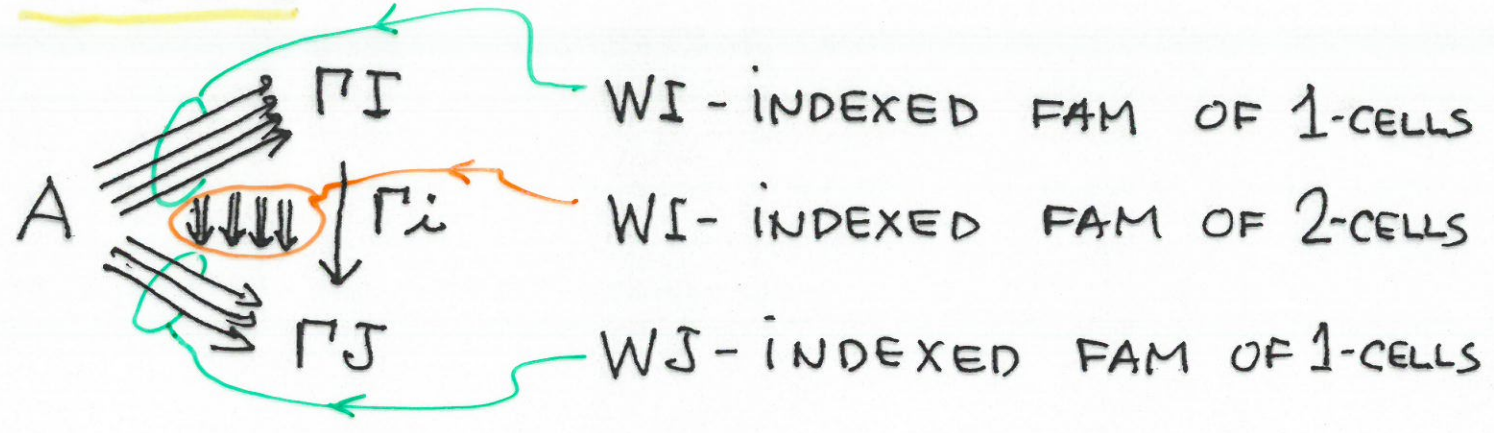 ΓI
WI - INDEXED FAM OF 1-CELLS
A
Γi
WI - INDEXED FAM OF 2-CELLS
ΓJ
WJ - INDEXED FAM OF 1-CELLS